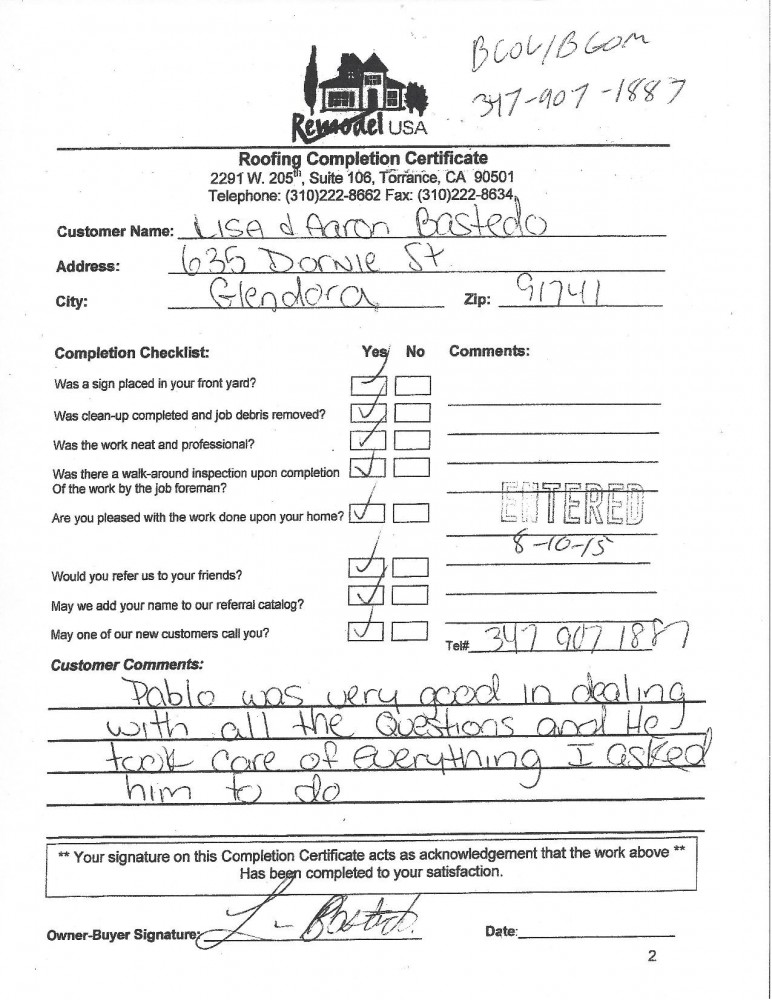 BCOL/BCOM
347-907-1887
Remodel USA
Roofing Completion Certificate
2291 W. 205th, Suite 106, Torrance, CA 90501
Telephone: (310)222-8662 Fax: (310)222-8634
Customer Name: LISA & Aaron Bastedo
Address: 635 Dornie St.
City: Glendora Zip: 91741
Completion Checklist: Yes No Comments:
Was a sign placed in your front yard?
Was clean-up completed and job debris removed?
Was the work neat and professional?
Was there a walk-around inspection upon completion
Of the work by the job foreman?
ENTERED
Are you pleased with the work done upon your home?
8-10-15
Would you refer us to your friends?
May we add your name to our referral catalog?
May one of our new customers call you?
Tel# 347 907 1887
Customer Comments:
Pablo was very good in dealing
with all the Questions and He
took care of Everything I asked
him to do
** Your signature on this Completion Certificate acts as acknowledgement that the work above **
Has been completed to your satisfaction.
Owner-Buyer Signature: L Bastedo Date:
2